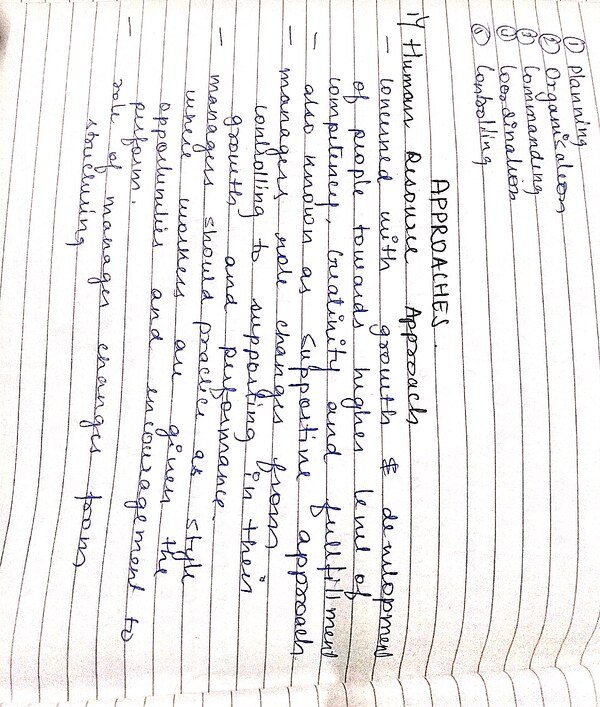 ① Planning
② Organisation
③ Commanding
④ Coordination
⑤ Controlling
APPROACHES.
1) Human Resource Approach
- concerned with growth & development
of people towards higher level of
competency, creativity and fullfillment
- also known as supportive approach.
- managers role changes from
controlling to supporting in their
growth and performance.
- managers should practice as style
where workers are given the
opportunities and encouragement to
perform.
- role of manager changes from
structuring